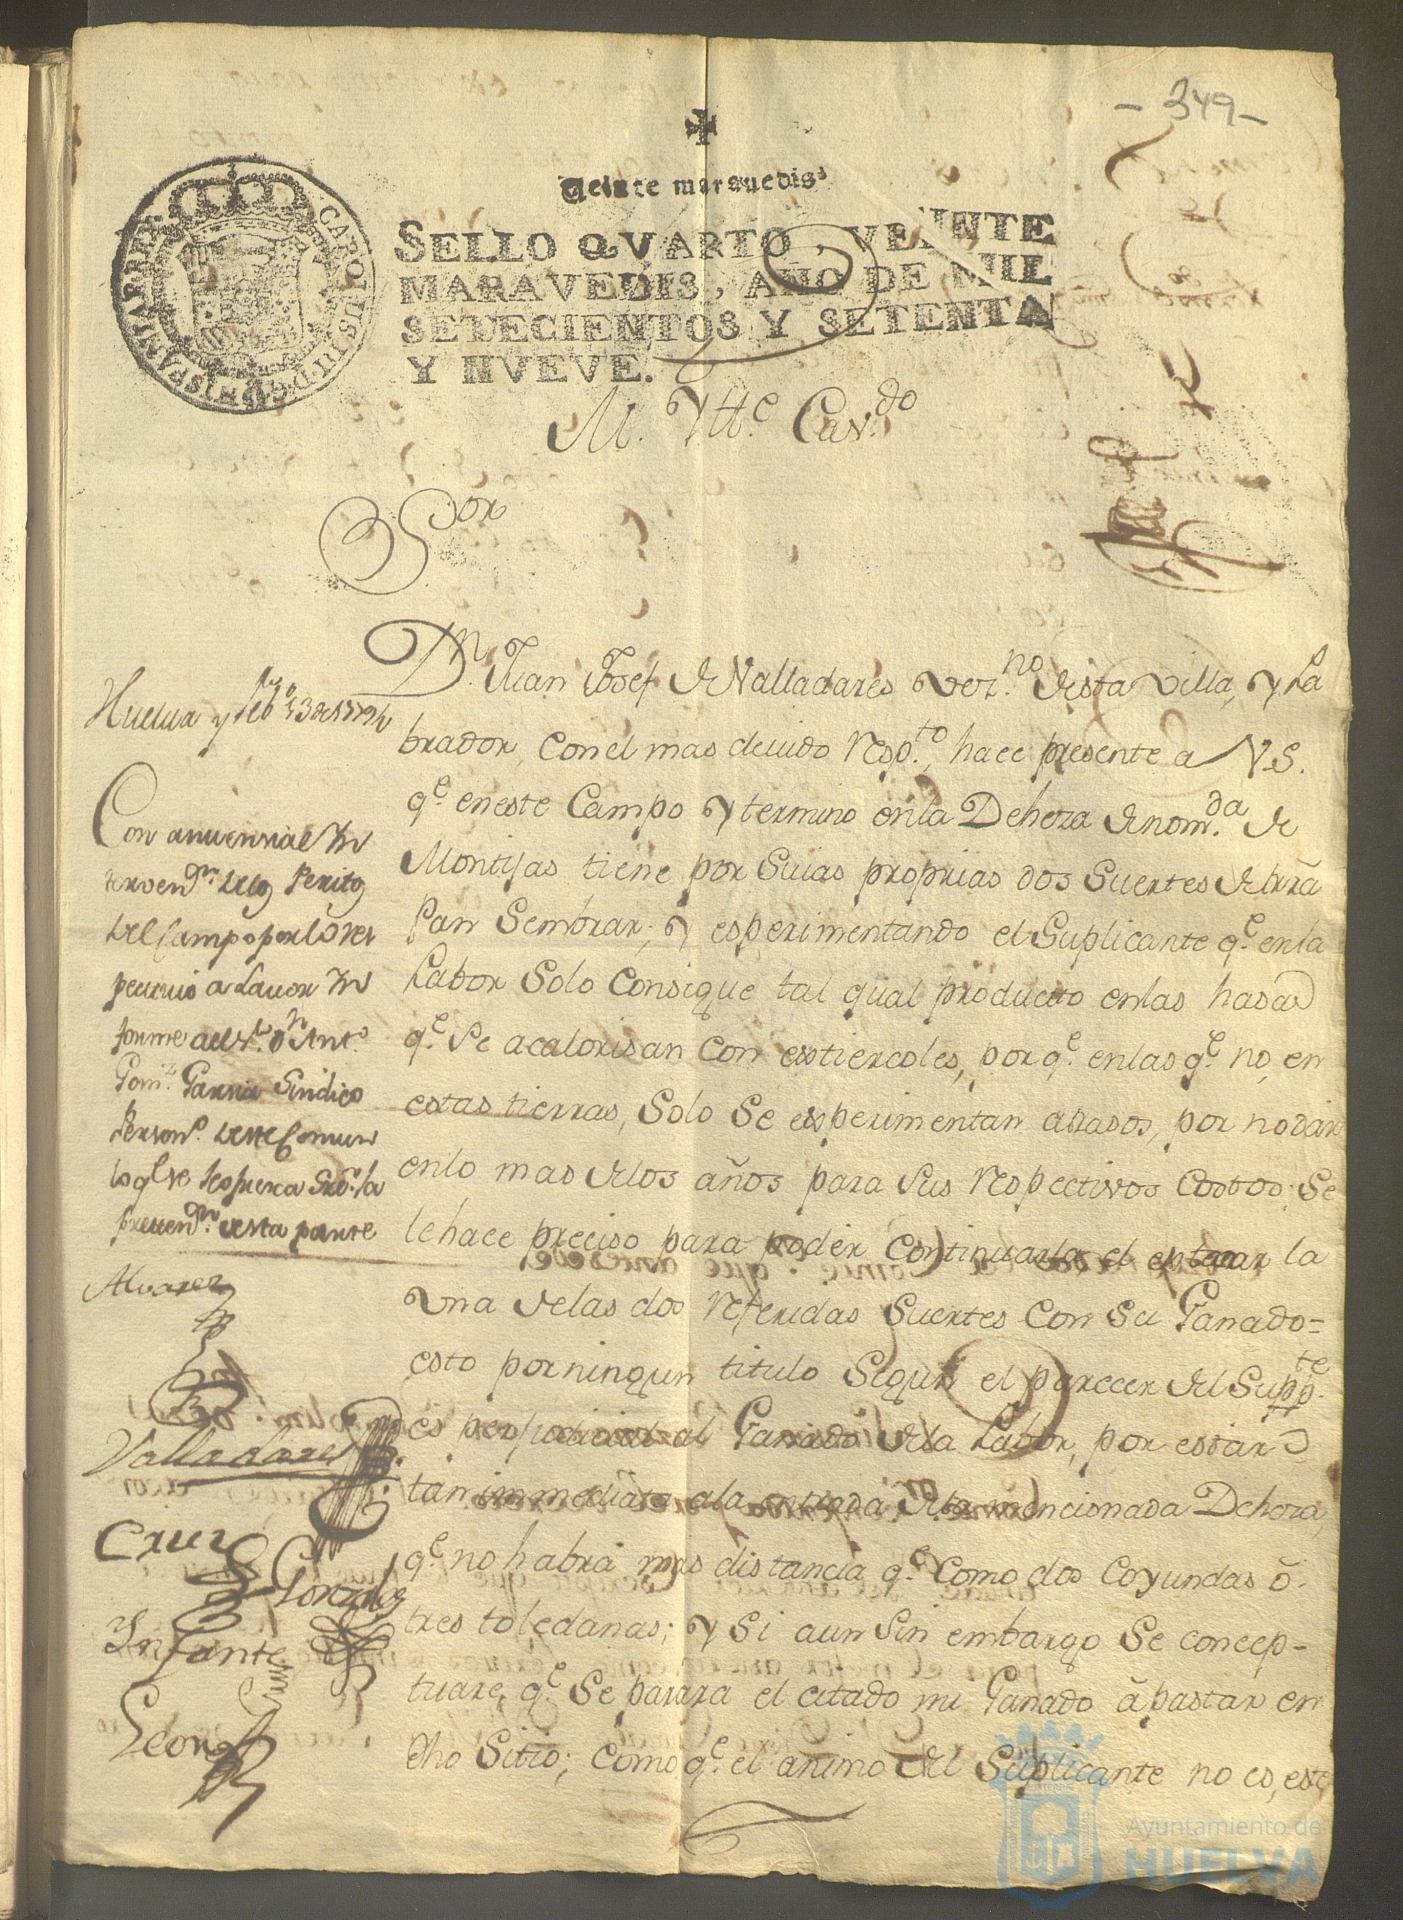 - 349 -
Veinte maravedis
SELLO QVARTO, VEINTE
MARAVEDIS, AÑO DE MIL
SETECIENTOS Y SETENTA
Y NUEVE.
CAROLUS III D G HISPANIAR REX
M. Ytt.e Cav.do
S.or
D.n Juan Josef de Valladares vez.no de esta Villa, y La
brador, con el mas devido resp.to, hace presente a V.S.
q.e en este Campo y termino en la Deheza de nom.da de
Montijas tiene por Suias proprias dos Suertes de trrã
Pan Sembrar; y esperimentando el Suplicante q.e en la
Labor Solo Consigue tal qual producto en las hasas
q.e Se acalorisan con estiercoles, por q.e en las q.e no, en
estas tierras, Solo Se esperimentan atrasos, por no dar
en lo mas de los años para Sus respectivos costos; Se
le hace preciso para poder continuarla, el entrar la
una de las dos referidas Suertes con Su Ganado=
esto por ningun titulo Segun el parecer del Supp.te
es perjudicial al Ganado de la Labor, por estar
tan immediata a la entrada de la mencionada Deheza,
q.e no habrá mas distancia q.e como dos coyundas ó
tres toledanas; y Si aun Sin embargo Se concep-
tuare, q.e Se parara el citado mi Ganado á pastar en
dho Sitio; como q.e el animo del Suplicante no es, este
Huelva y feb.o 13 de 1779
Con anuencia e In
terven.on de los Peritos
del Campo por lo res
pectivo a Lavor In
forme del D.n Ant.o
Gom.z Garcia Sindico
Person.o de este Comun
lo q.e se le ofresca Sre. la
pretten.on de esta parte
Alvarez
Valladares
Cruz
Gonzalez
Infante
Leon
Ayuntamiento de
HUELVA